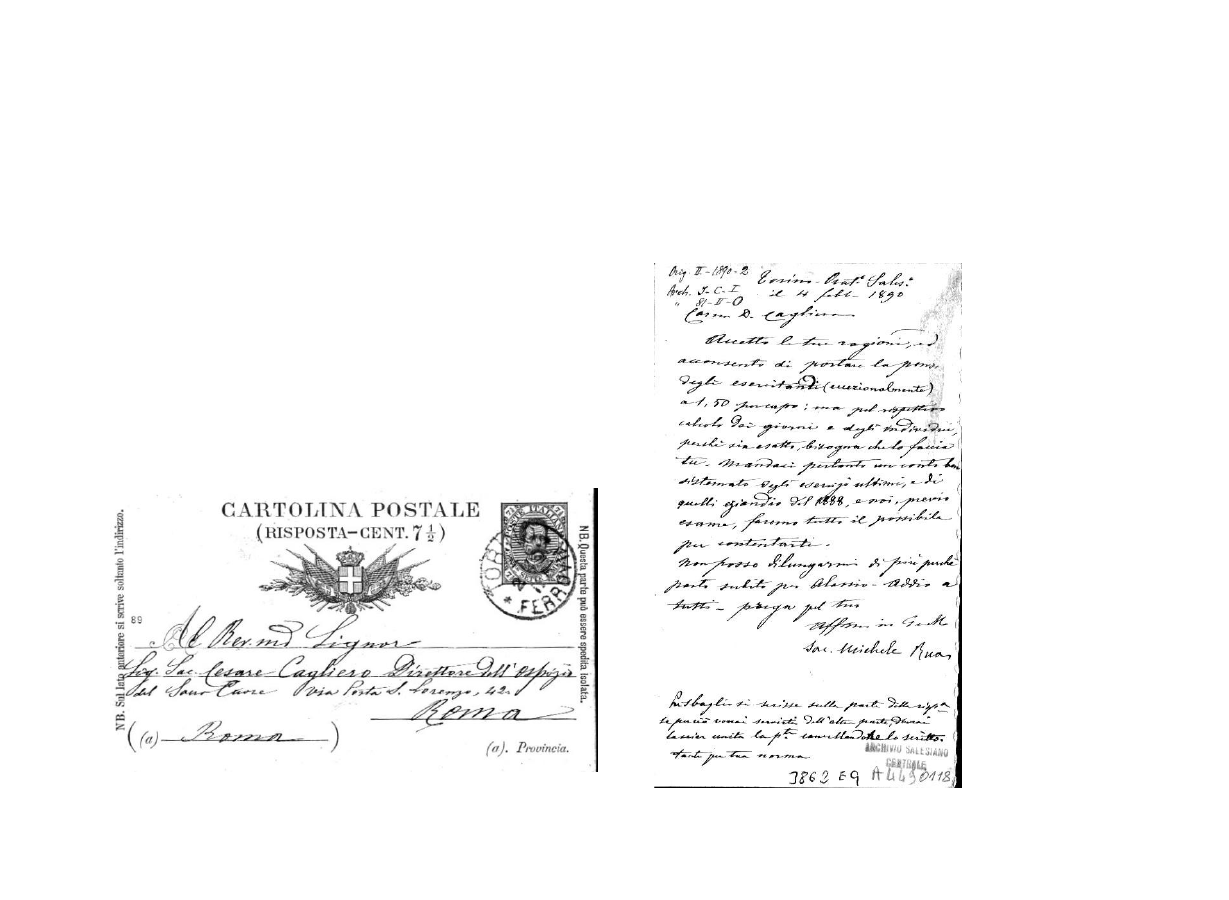 CARTOLINA POSTALE
(RISPOSTA-CENT. 7 ½)
NB. Sul lato anteriore si scrive soltanto l'indirizzo.
NB. Questa parte può essere spedita isolata.
FERROVIA
89
Al Rev.md Signor
Sig. Sac. Cesare Cagliero Direttore dell'Ospizio
del Sacro Cuore via Porta S. Lorenzo, 42.
Roma
(a) Roma
(a). Provincia.
Orig. II-1890-2
Arch. S-C-I
" 81-II-0
Torino-Orat. Sales.
il 4 febb. 1890
Carm D. Cagliero
Accetto le tue ragioni, ed
acconsento di portare la pens.
degli esercitandi (eccezionalmente)
a 1,50 per capo; ma pel rispettivo
calcolo dei giorni e degli individui,
perchè sia esatto, bisogna che lo faccia
tu. Mandaci pertanto un conto ben
sistemato degli esercizi ultimi, e di
quelli eziandio del 1888, e noi, previo
esame, faremo tutto il possibile
per contentarti.
Non posso dilungarmi di più perchè
parto subito per Alassio. Addio a
tutti - prega pel tuo
Affmo in G. e M.
Sac. Michele Rua
Per sbaglio si scrisse sulla parte della risp.
se perciò vorrai servirti dell'altra parte, dovrai
lasciar unita la p.te cancellandone lo scritto.
tanto per tua norma
ARCHIVIO SALESIANO
CENTRALE
3862 E9 A4490118